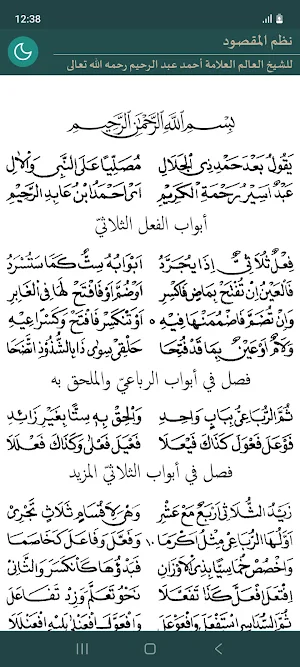 12:38
نظم المقصود
للشيخ العالم العلامة أحمد عبد الرحيم رحمه الله تعالى
بسم الله الرحمن الرحيم
يَقُولُ بَعْدَ حَمْدِ ذِي الْجَلَالِ مُصَلِّيًا عَلَى النَّبِي وَالْآلِ
عَبْدٌ أَسِيرُ رَحْمَةِ الْكَرِيمِ أَيْ أَحْمَدُ بْنُ عَابِدِ الرَّحِيمِ
أبواب الفعل الثلاثيّ
فِعْلٌ ثُلَاثِيٌّ إِذَا يُجَرَّدُ أَبْوَابُهُ سِتٌّ كَمَا سَتُسْرَدُ
فَالْعَيْنُ إِنْ تُفْتَحْ بِمَاضٍ فَاكْسِرِ أَوْ ضُمَّ أَوْ فَافْتَحْ لَهَا فِي الْغَابِرِ
وَإِنْ تُضَمَّ فَاضْمُمَنْهَا فِيهِ ٥ أَوْ تَنْكَسِرْ فَافْتَحْ وَكَسْرًا عِيهِ
وَلَامٌ أَوْ عَيْنٌ بِمَا قَدْ فُتِحَا حَلْقِيْ سِوَى ذَا بِالشُّذُوذِ اتَّضَحَا
فصل في أبواب الرباعيّ والملحق به
ثُمَّ الرُّبَاعِيُّ بِبَابٍ وَاحِدِ وَالْحِقْ بِهِ سِتًّا بِغَيْرِ زَائِدِ
فَوْعَلَ فَعْوَلَ كَذَاكَ فَيْعَلَا فَعْيَلَ فَعْلَى وَكَذَاكَ فَعْلَلَا
فصل في أبواب الثلاثيّ المزيد
زَيْدُ الثُّلَاثِي أَرْبَعٌ مَعْ عَشْرِ وَهْيَ لِأَقْسَامٍ ثَلَاثٍ تَجْرِي
أَوَّلُهَا الرُّبَاعِ مِثْلُ أَكْرَمَا ١٠ وَفَعَّلَ وَفَاعَلَ كَخَاصَمَا
وَاخْصُصْ خُمَاسِيًّا بِذِي الْأَوْزَانِ فَبَدْؤُهَا كَانْكَسَرَ وَالثَّانِي
افْتَعَلَ افْعَلَّ كَذَا تَفَعَّلَا نَحْوُ تَعَلَّمَ وَزِدْ تَفَاعَلَا
ثُمَّ السُّدَاسِيْ اسْتَفْعَلَ وَافْعَوْعَلَ وَافْعَوَّلَ افْعَنْلَى يَلِيهِ افْعَنْلَلَا